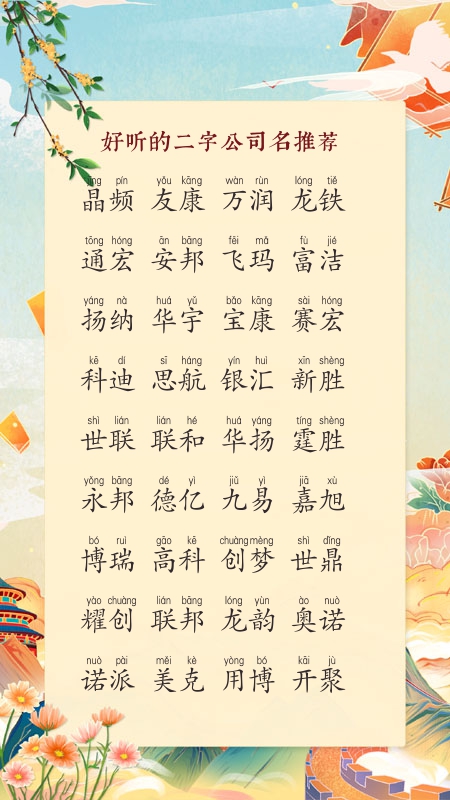 好听的二字公司名推荐
jīng pín yǒu kāng wàn rùn lóng tiě
晶频 友康 万润 龙铁
tōng hóng ān bāng fēi mǎ fù jié
通宏 安邦 飞玛 富洁
yáng nà huá yǔ bǎo kāng sài hóng
扬纳 华宇 宝康 赛宏
kē dí sī háng yín huì xīn shèng
科迪 思航 银汇 新胜
shì lián lián hé huá yáng tíng shèng
世联 联和 华扬 霆胜
yǒng bāng dé yì jiǔ yì jiā xù
永邦 德亿 九易 嘉旭
bó ruì gāo kē chuàng mèng shì dǐng
博瑞 高科 创梦 世鼎
yào chuàng lián bāng lóng yùn ào nuò
耀创 联邦 龙韵 奥诺
nuò pài měi kè yòng bó kāi jù
诺派 美克 用博 开聚